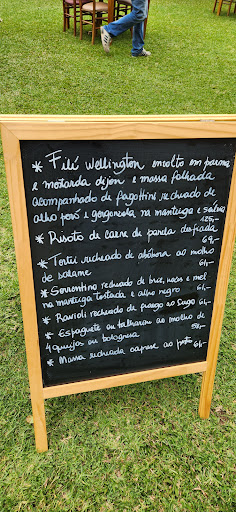 * Filé Wellington envolto em parma
e mostarda dijon e massa folhada
acompanhado de fagottini recheado de
alho poró e gorgonzola na manteiga e sálvia
125,-
* Risoto de carne de panela desfiada
69,-
* Tortei recheado de abóbora ao molho
de salame 64,-
* Sorrentino recheado de brie, nozes e mel
na manteiga tostada e alho negro 64,-
* Ravioli recheado de frango ao sugo 64,-
* Espaguete ou talharim ao molho de
4 queijos ou bolognesa 58,-
* Massa recheada caprese ao pesto 64,-